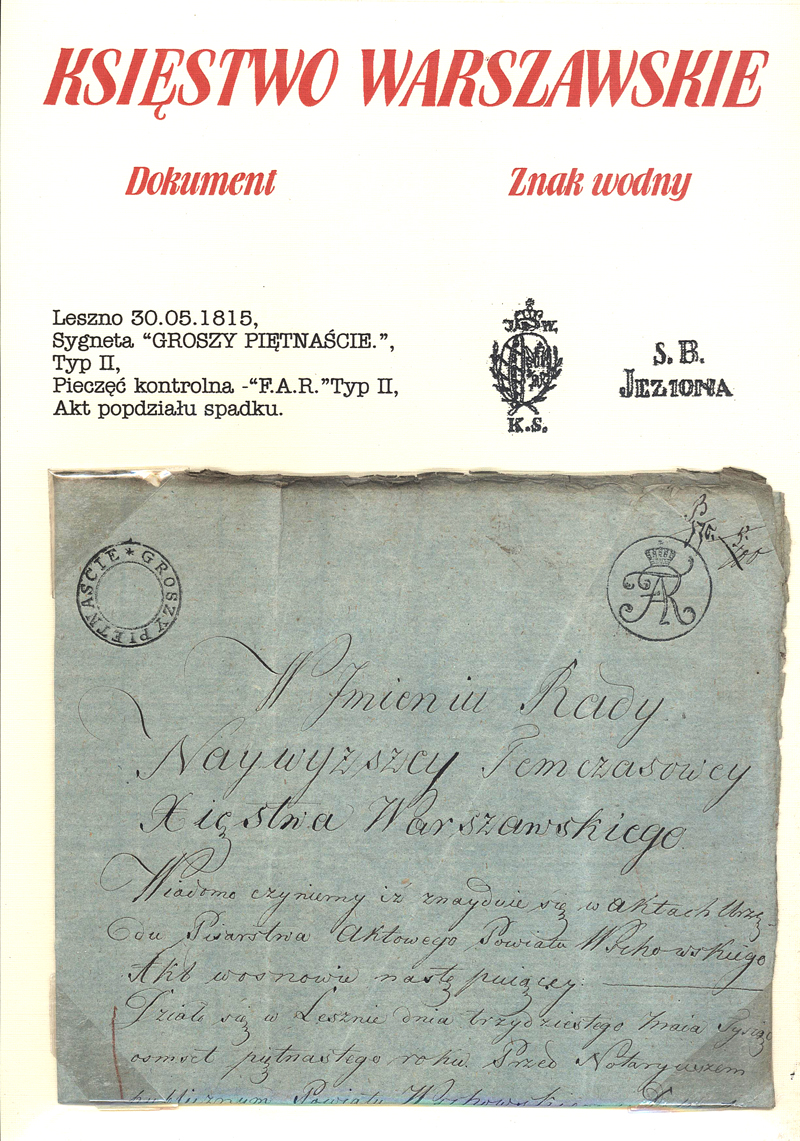 KSIĘSTWO WARSZAWSKIE
Dokument
Znak wodny
Leszno 30.05.1815,
Sygneta “GROSZY PIĘTNAŚCIE.”,
Typ II,
Pieczęć kontrolna -“F.A.R.”Typ II,
Akt popdziału spadku.
J. W.
K.S.
S.B.
JEZIONA
★ GROSZY PIĘTNAŚCIE
FAR
W Jmieniu Rady
Naywyższey Temczasowey
Xięstwa Warszawskiego
Wiadomo czyniemy iż znayduie się w aktach Urzę
du Pisarstwa Aktowego Powiatu Wschowskiego
Akt wosnowie nastę puiącey:
Działo się w Lesznie dnia trzydziestego maia Tysiąc
osmset piętnastego roku. Przed Notaryuszem
publicznym Powiatu Wschowskie